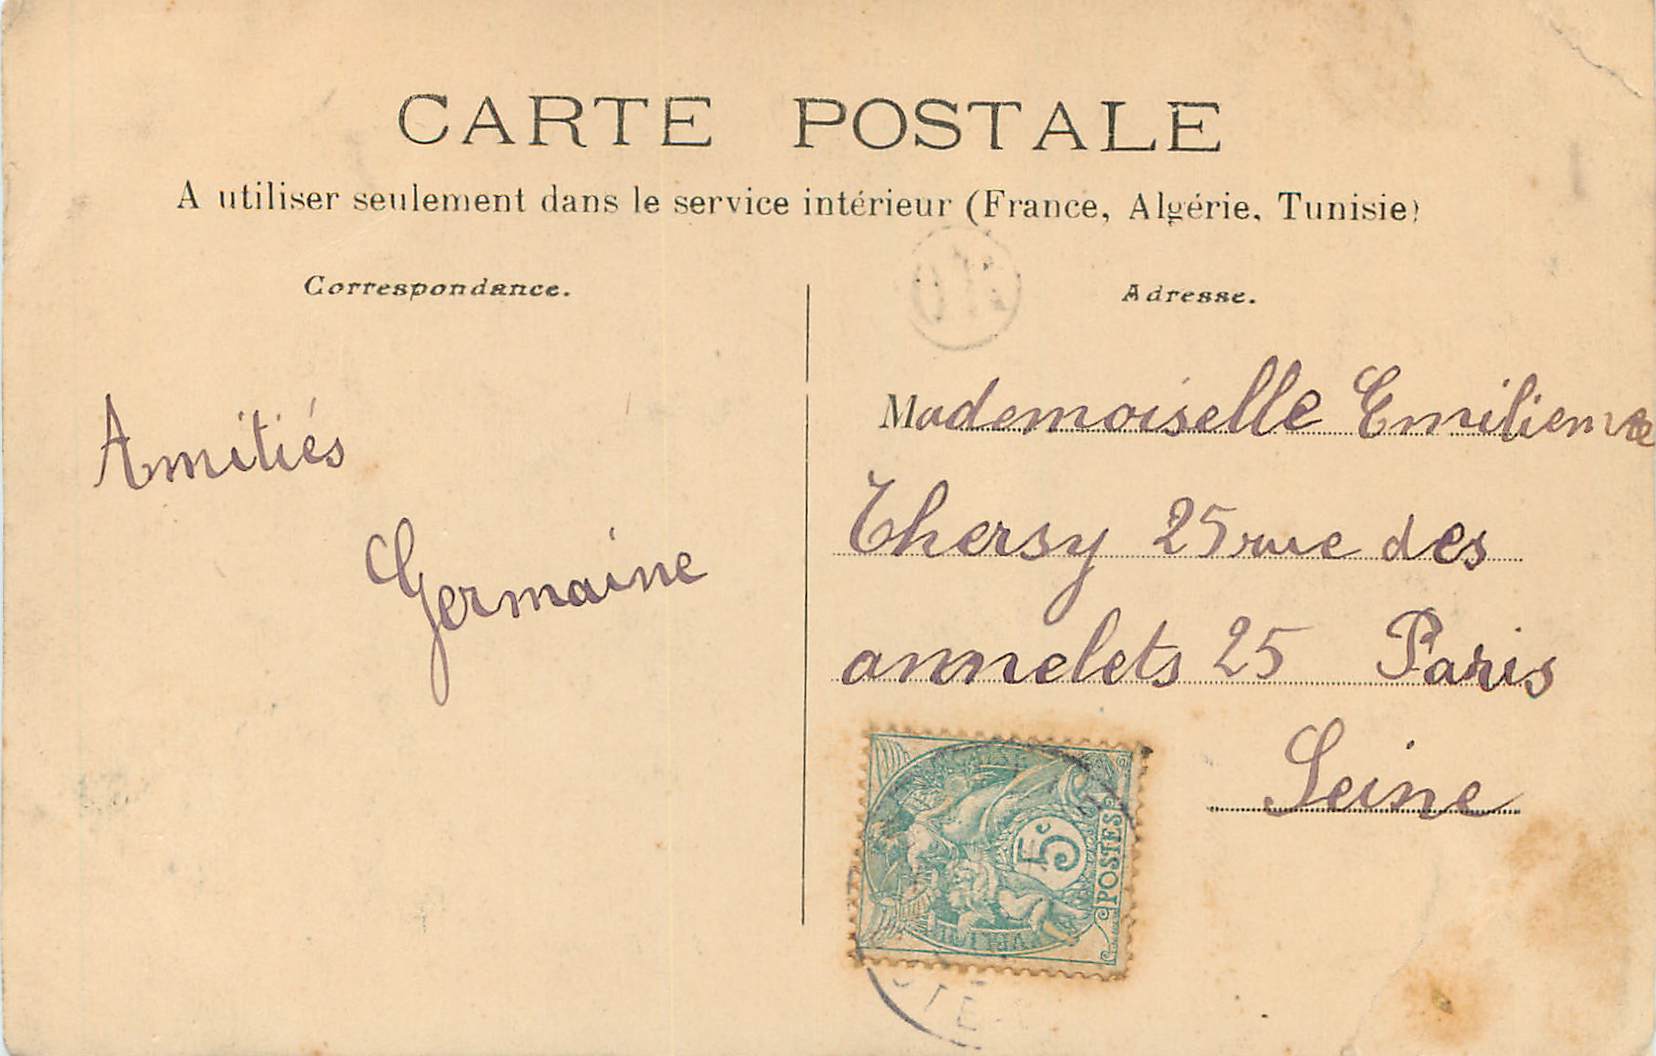 CARTE POSTALE
A utiliser seulement dans le service intérieur (France, Algérie, Tunisie)
Correspondance.
Adresse.
Amitiés
Germaine
Mademoiselle Emilienne
Thersy 25 rue des
annelets 25 Paris
Seine
5c
POSTES